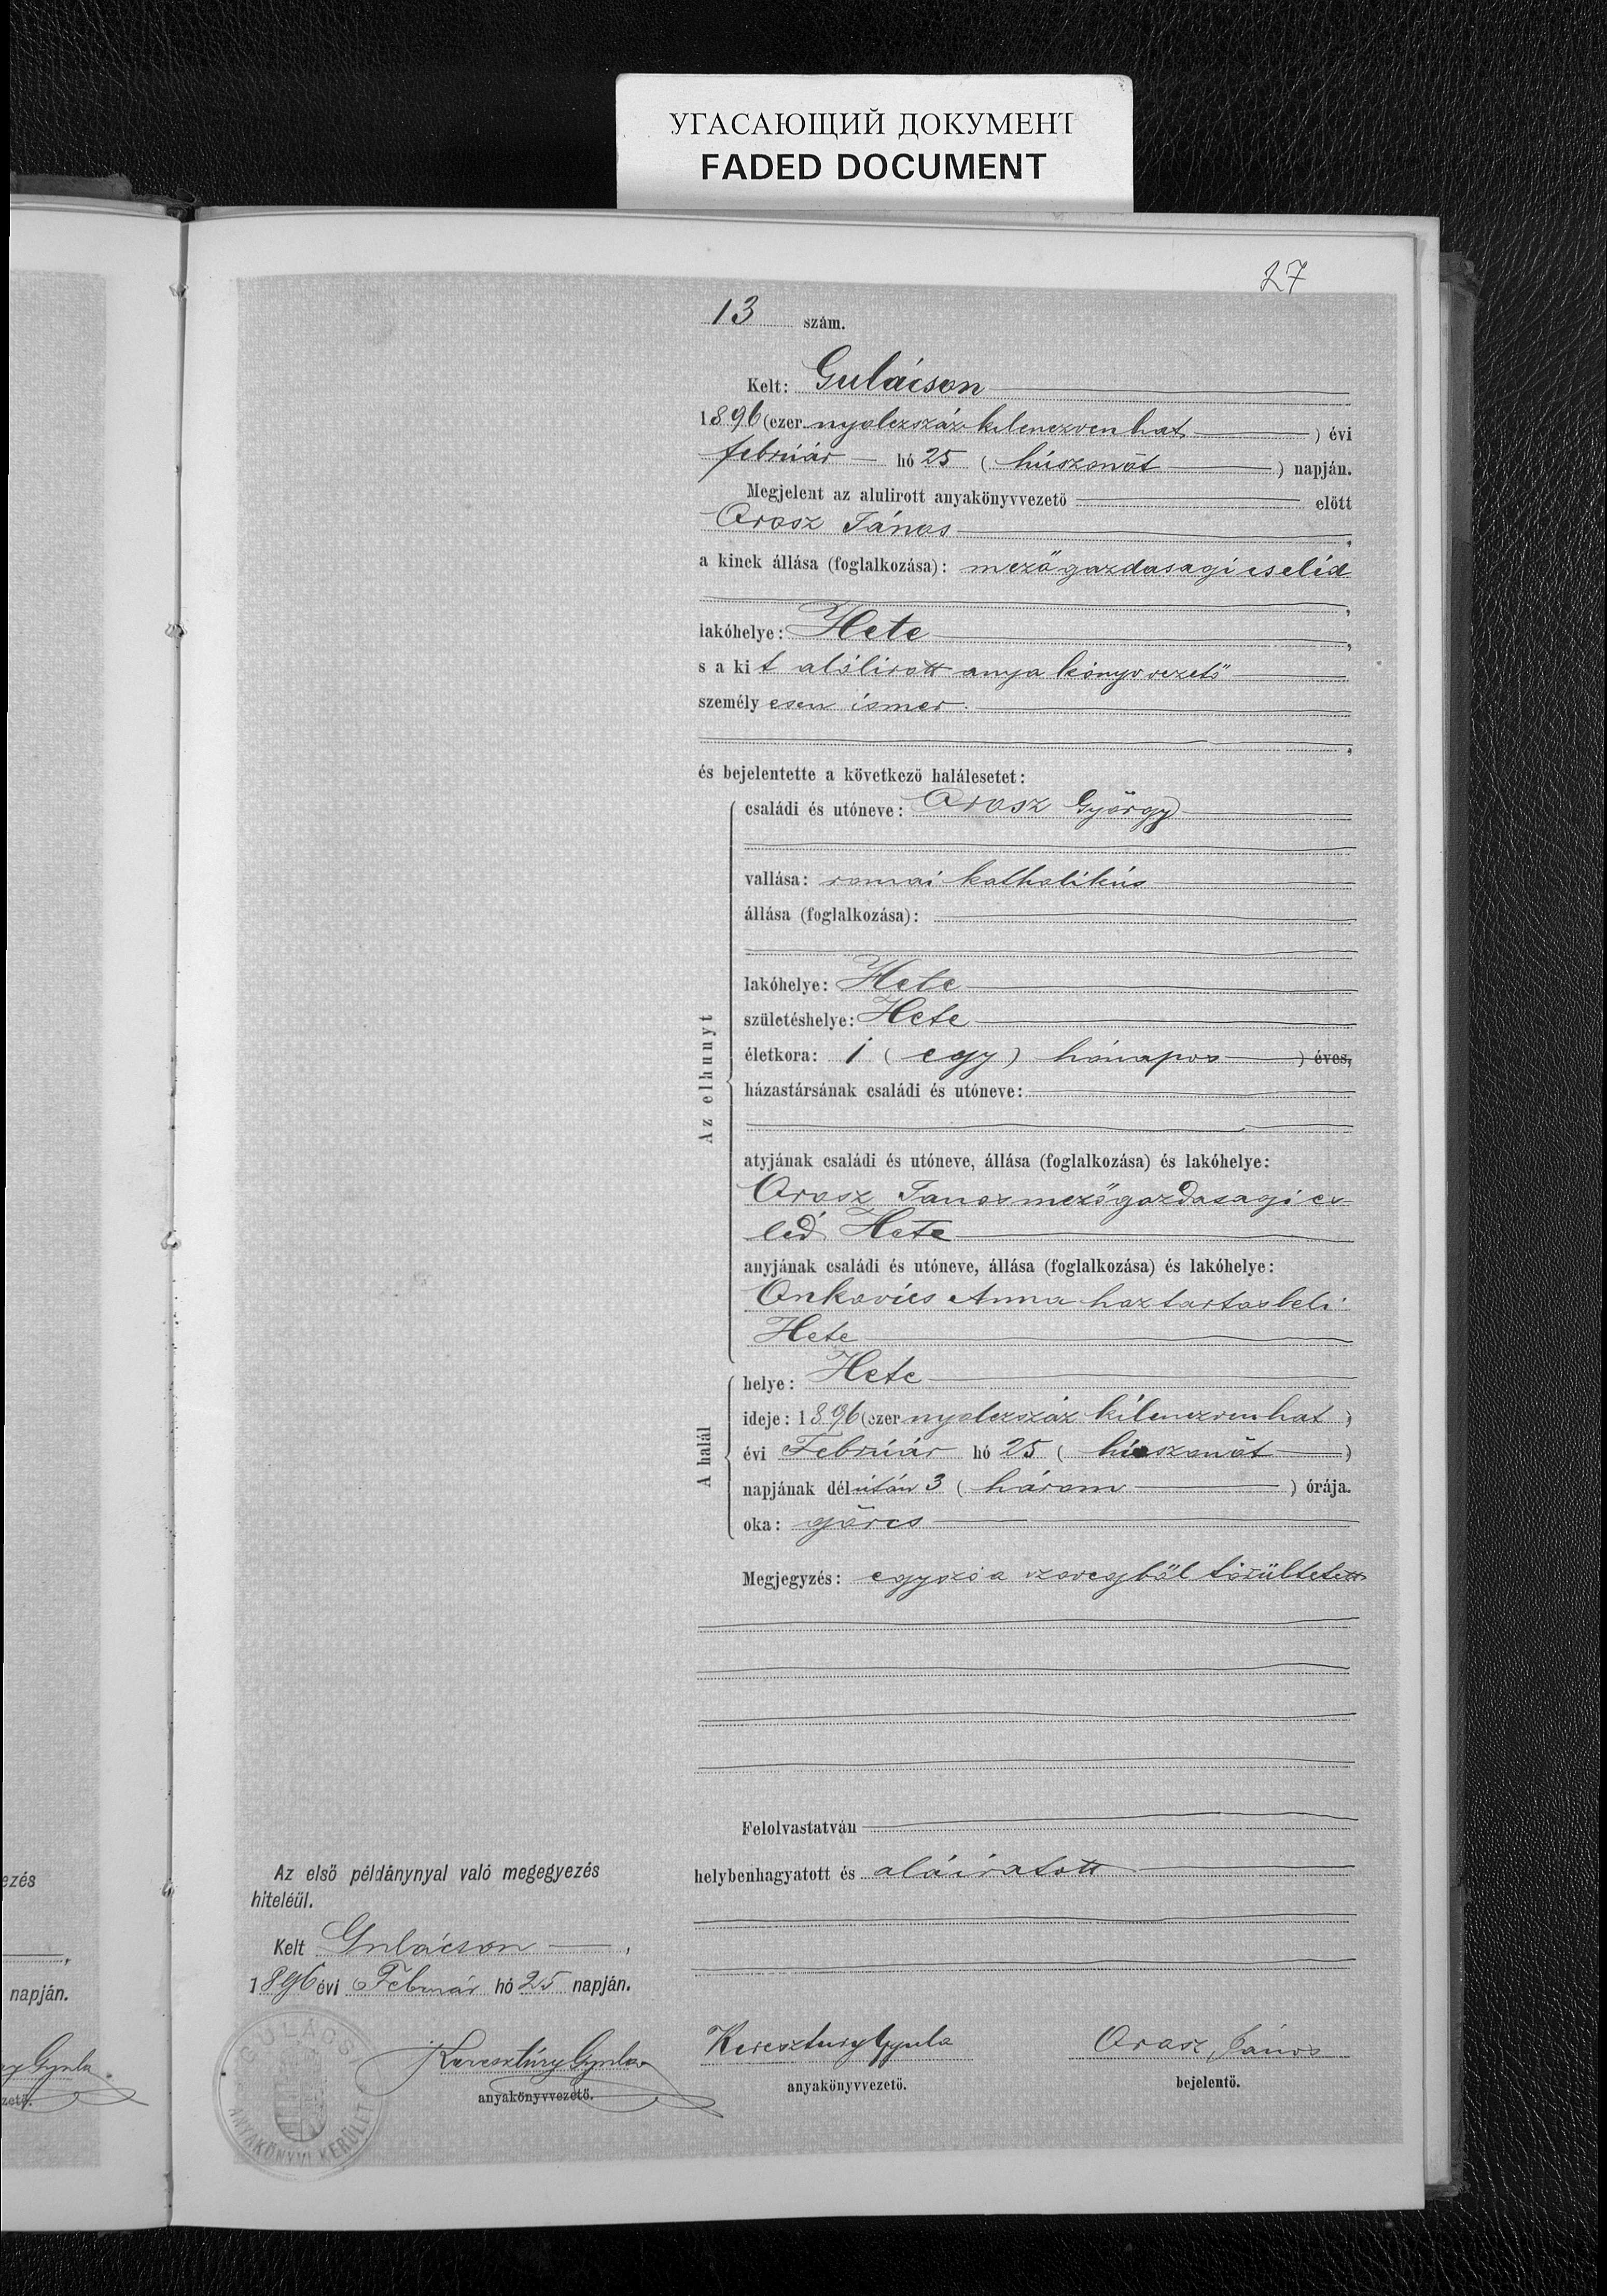 УГАСАЮЩИЙ ДОКУМЕНТ
FADED DOCUMENT
27
13 szám.
Kelt: Gulácson
1896 (ezer nyolczszáz kilenczvenhat ) évi
február hó 25 ( húszonöt ) napján.
Megjelent az alulirott anyakönyvvezető előtt
Orosz János ,
a kinek állása (foglalkozása): mezőgazdasagi cseléd
,
lakóhelye: Hete ,
s a kit alólirott anyakönyvvezető
személyesen ismer.
,
és bejelentette a következő halálesetet:
Az elhunyt
családi és utóneve: Orosz György
vallása: romai katholikús
állása (foglalkozása):
lakóhelye: Hete
születéshelye: Hete
életkora: 1 ( egy ) hónapos ) éves,
házastársának családi és utóneve:
atyjának családi és utóneve, állása (foglalkozása) és lakóhelye:
Orosz Janos mezőgazdasagi cs
léd Hete
anyjának családi és utóneve, állása (foglalkozása) és lakóhelye:
Onkovics Anna haztartasbeli
Hete
A halál
helye: Hete
ideje: 1896 (ezer nyolczszáz kilenczvenhat )
évi Február hó 25 ( húszonöt )
napjának délután 3 ( három ) órája.
oka: görcs
Megjegyzés: egy szó a szovegből töröltetett
Felolvastatván
helybenhagyatott és aláiratott
Az első példánynyal való megegyezés
hiteléül.
Kelt Gulácson ,
1896 évi Február hó 25 napján.
Keresztúry Gyula
anyakönyvvezető.
Keresztury Gyula
anyakönyvvezető.
Orosz János
bejelentő.
GULÁCS
ANYAKÖNYVI KERÜLET
ezés
,
napján.
ry Gyula
zető.